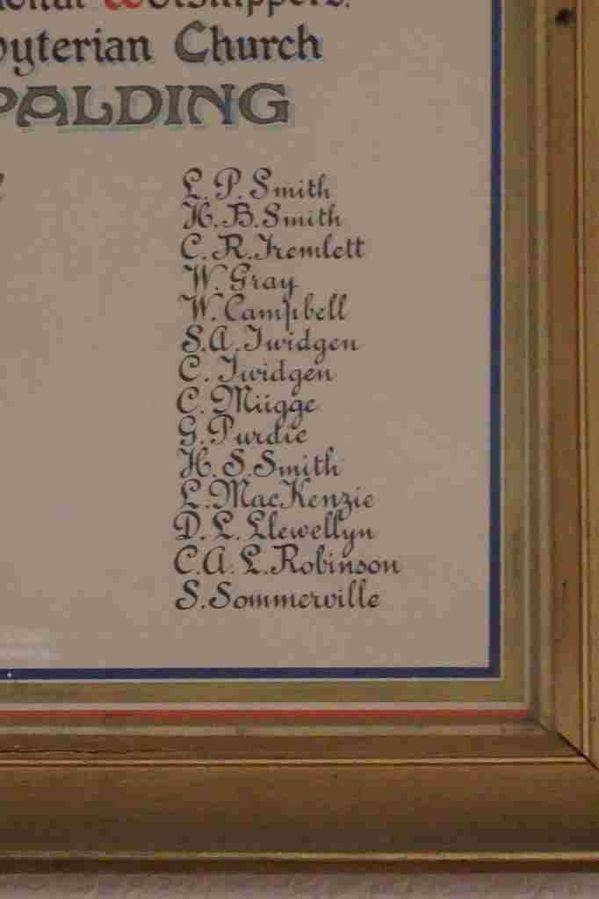 Worshippers.
byterian Church
PALDING
L. P. Smith
H. B. Smith
C. R. Tremlett
W. Gray
W. Campbell
S. A. Twidgen
C. Twidgen
C. Mügge
G. Purdie
H. S. Smith
L. MacKenzie
D. L. Llewellyn
C. A. L. Robinson
S. Sommerville